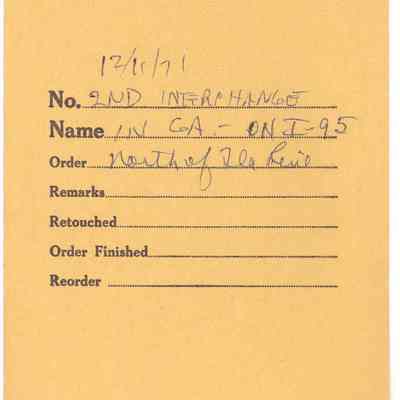 12/11/71
No. 2ND INTERCHANGE
Name IN GA. - ON I-95
Order North of Fla Line
Remarks
Retouched
Order Finished
Reorder